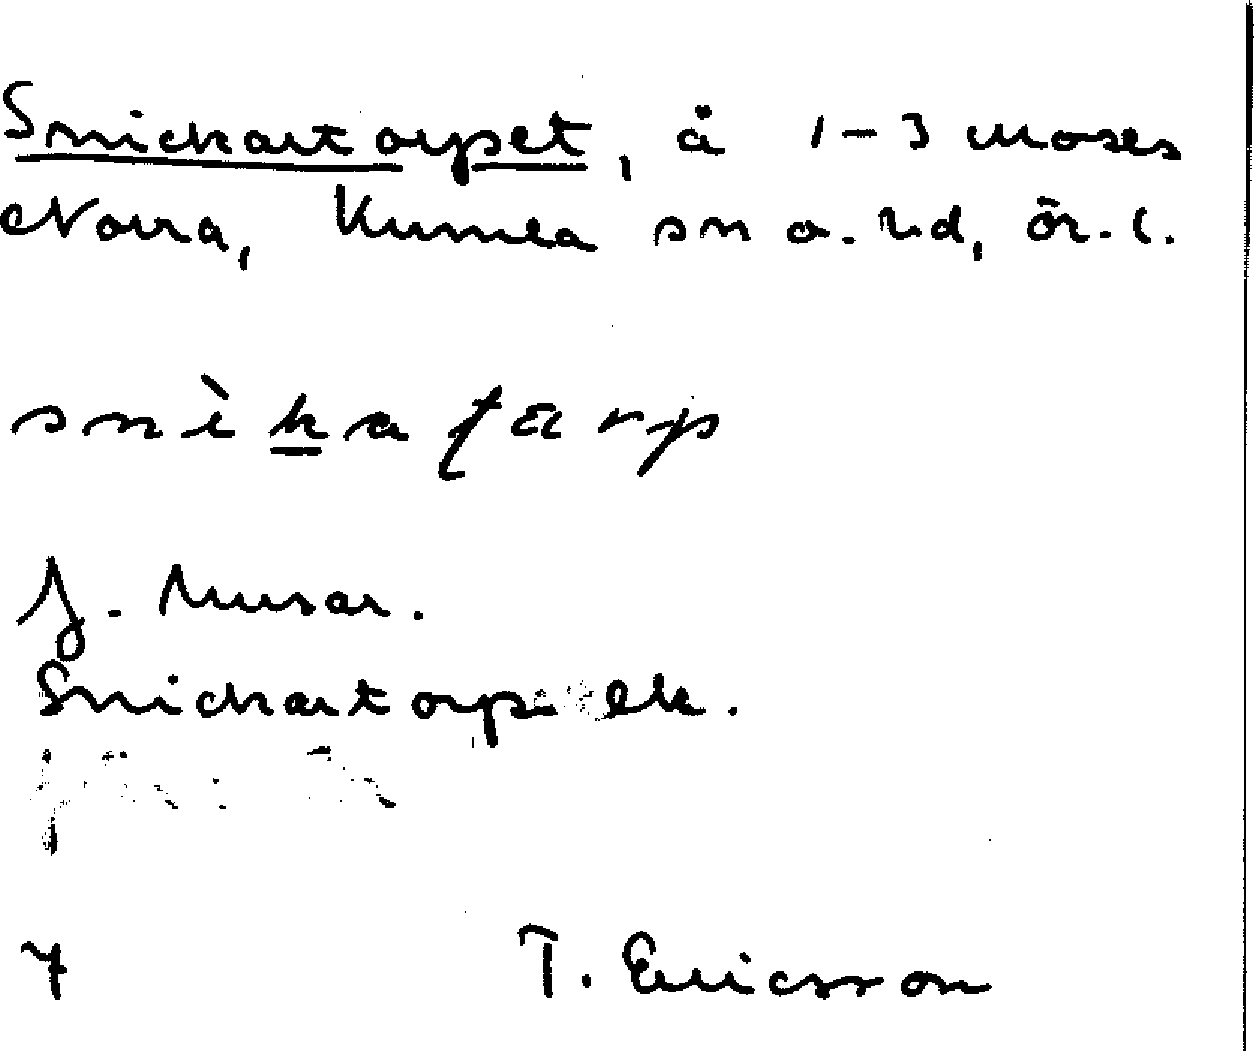 Snickartorpet, å 1-3 Moses
Norra, Kumla sn o. hd, Ör. l.
snìkatarp
J. Musar.
Snickartorp ek.
7 T. Ericsson